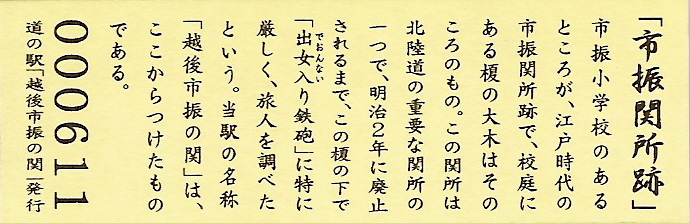 「市振関所跡」
市振小学校のある
ところが、江戸時代の
市振関所跡で、校庭に
ある榎の大木はその
ころのもの。この関所は
北陸道の重要な関所の
一つで、明治２年に廃止
されるまで、この榎の下で
「出女入り鉄砲」に特に
でおんない
厳しく、旅人を調べた
という。当駅の名称
「越後市振の関」は、
ここからつけたもの
である。
000611
道の駅「越後市振の関」発行